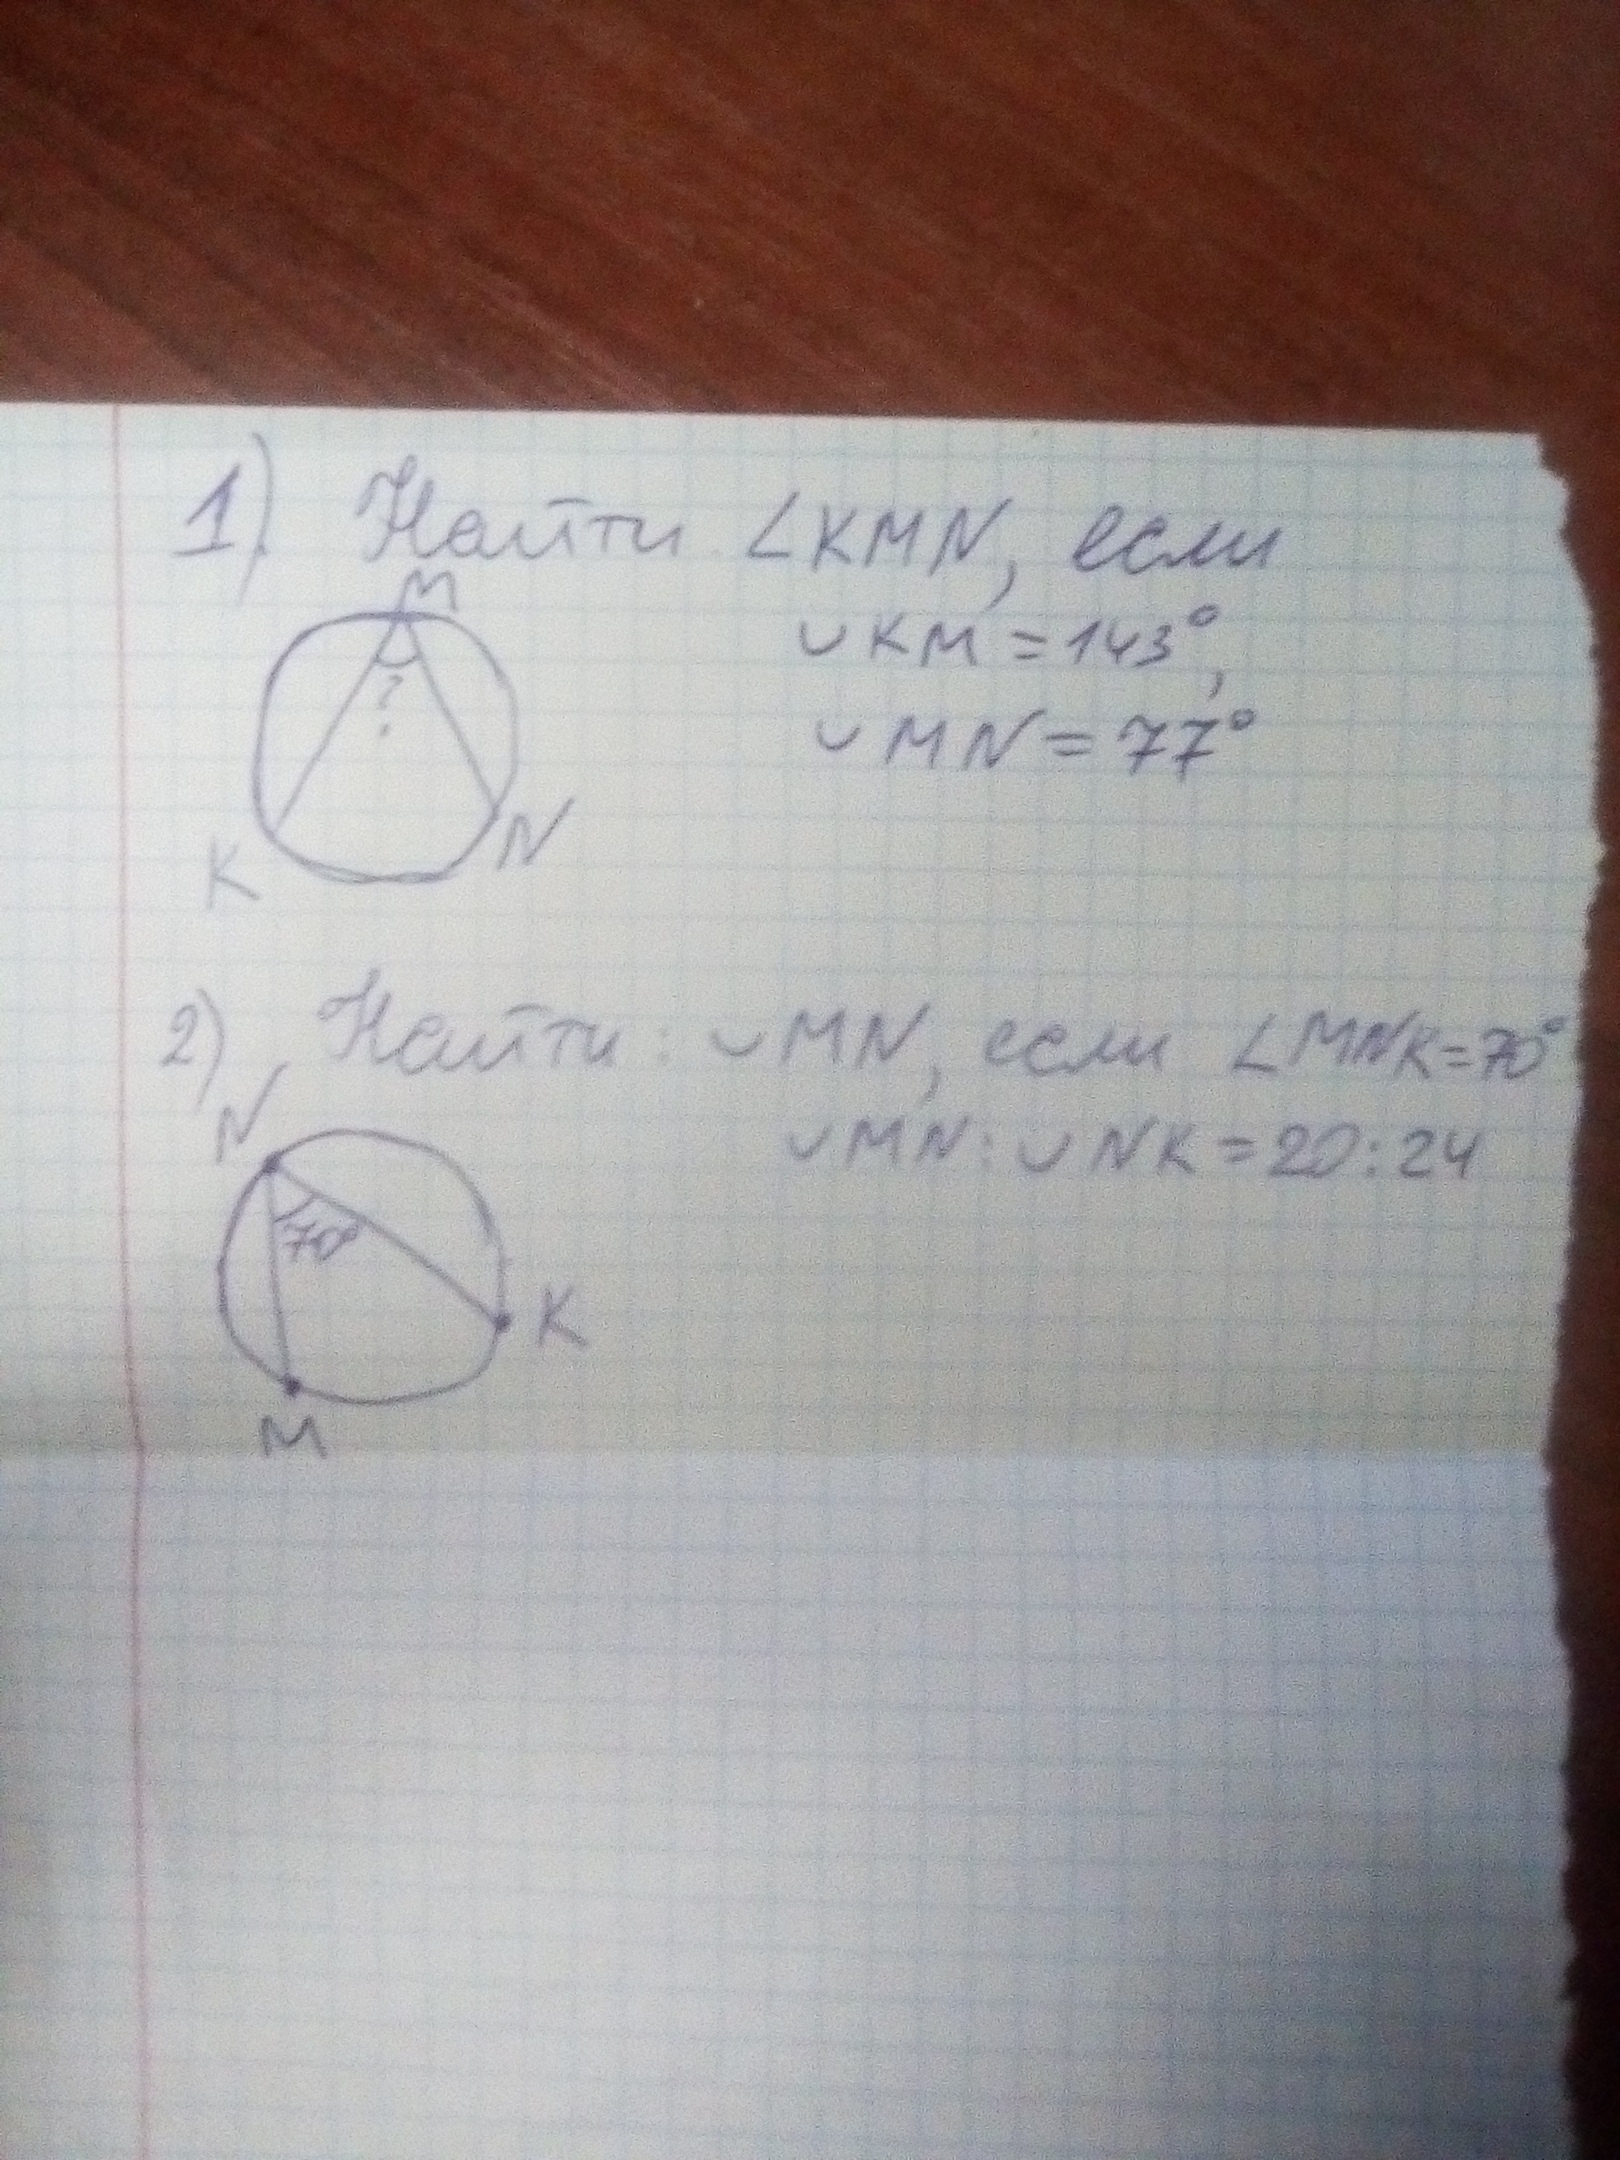 1) Найти ∠KMN, если
M
∪KM = 143°,
?
∪MN = 77°
K
N
2) Найти: ∪MN, если ∠MNK=70°
N
∪MN:∪NK=20:24
70°
K
M